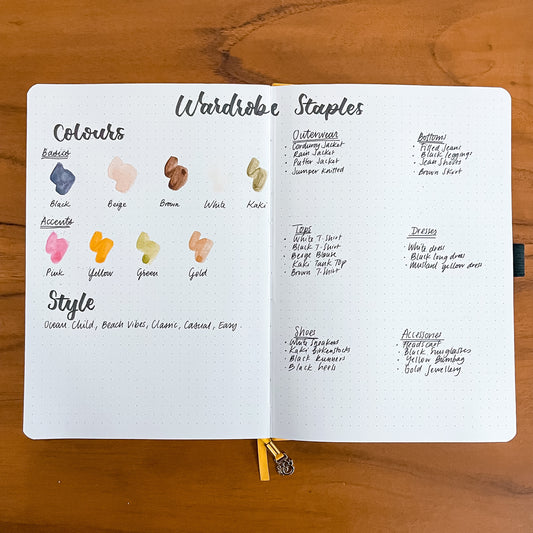 Wardrobe Staples
Colours
Basics
Black Beige Brown White Kaki
Accents
Pink Yellow Green Gold
Style
Ocean Child, Beach Vibes, Classic, Casual, Easy.
Outerwear
• Corduroy Jacket
• Rain Jacket
• Puffer Jacket
• Jumper Knitted
Bottoms
• Jeans
• Black leggings
• Jean Shorts
• Brown Skirt
Tops
• White T-Shirt
• Black T-Shirt
• Beige Blouse
• Kaki Tank Top
• Brown T-Shirt
Dresses
• White dress
• Black long dress
• Mustard yellow dress
Shoes
• White Sneakers
• Kaki Birkenstocks
• Black Runners
• Black heels
Accessories
• Headscarf
• Black Sunglasses
• Yellow Bumbag
• Gold Jewellery